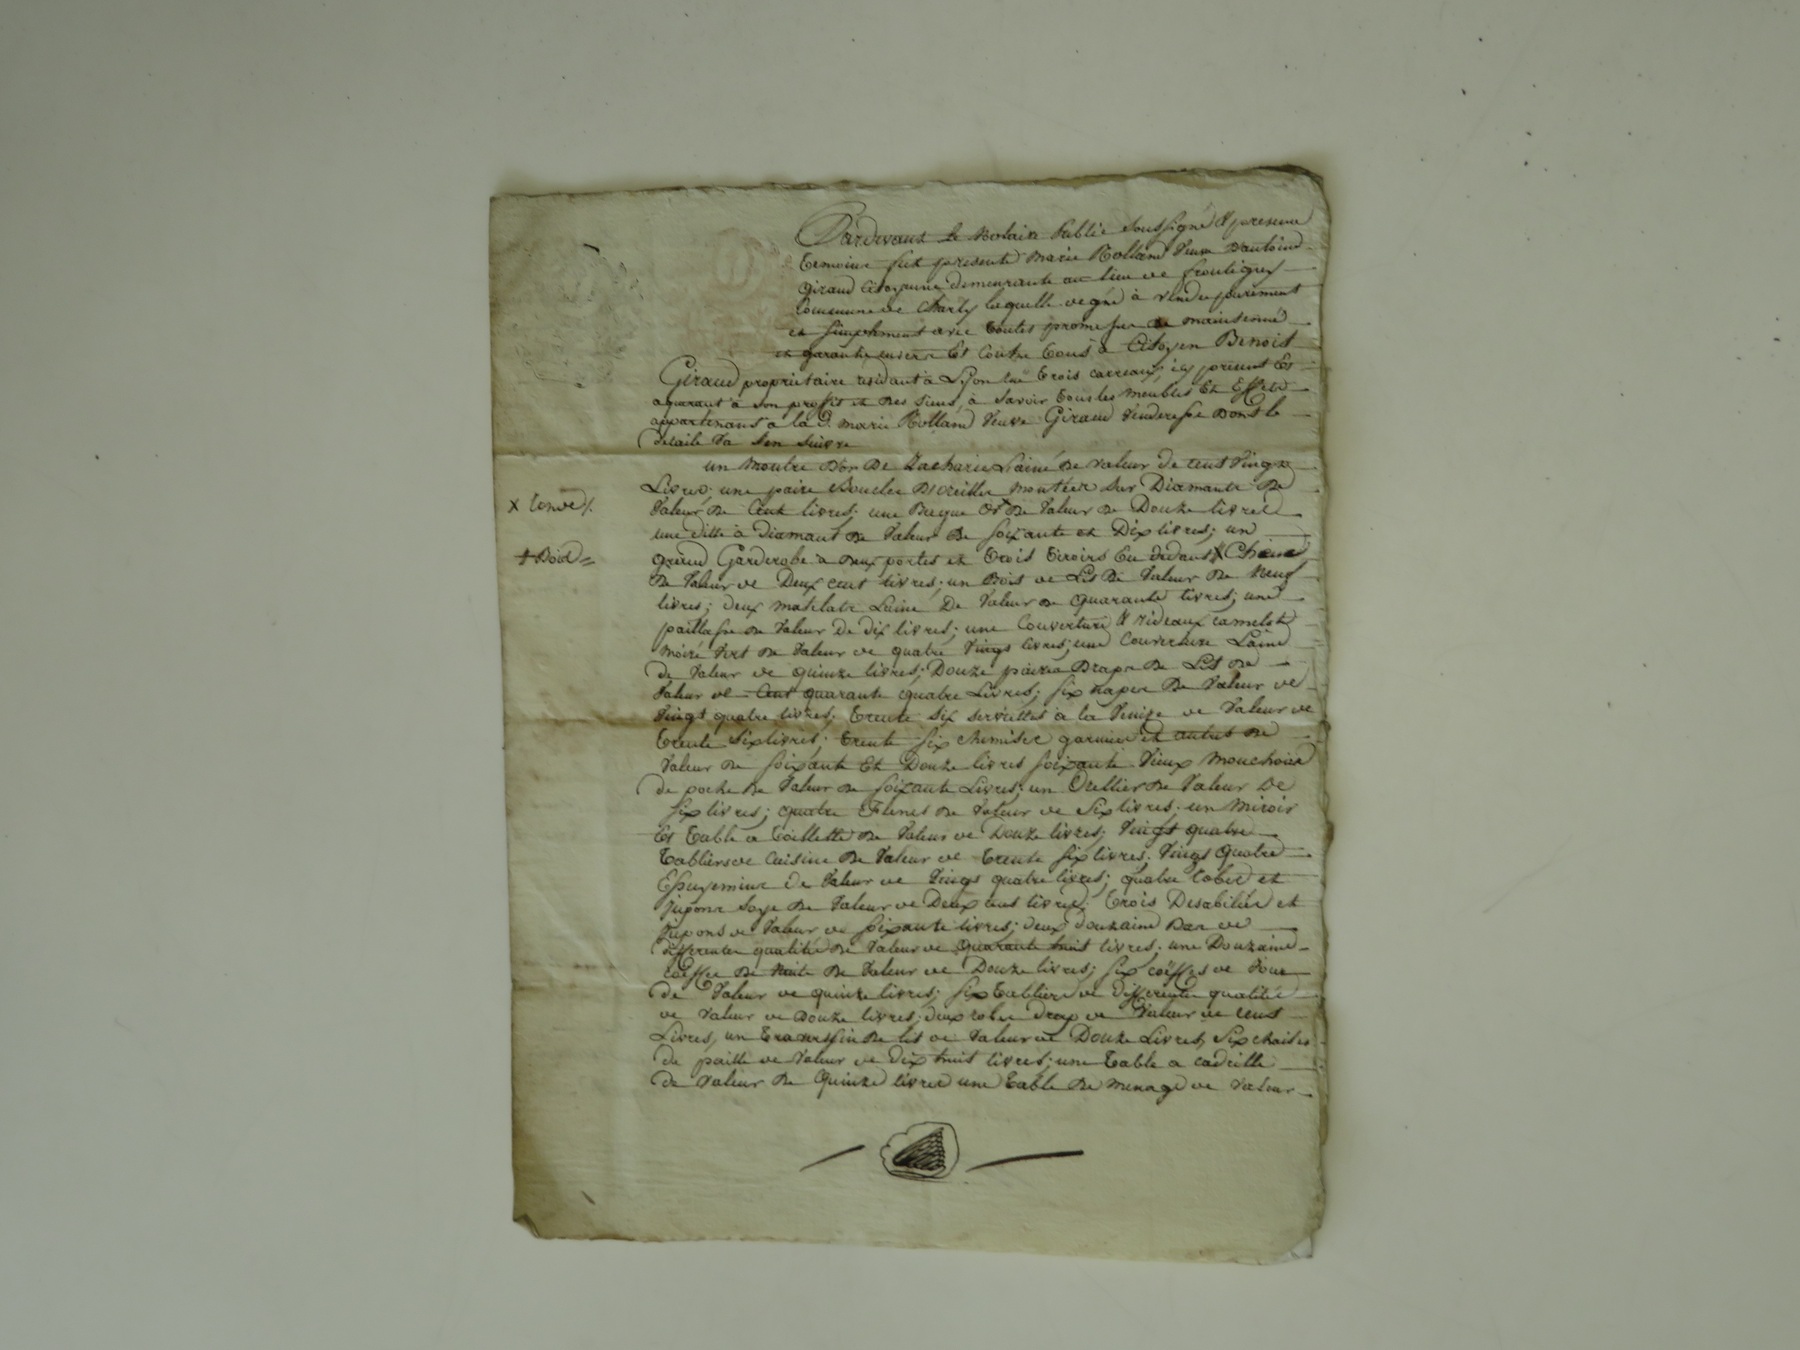 Pardevant le Notaire Public Soussigné & presence
temoins fut presente Marie Rolland Veuve d'antoine
Giraud Citoyenne demeurante au lieu de frontigny
Commune de Charly laquelle de gré à vendu purement
et simplement avec toutes promesses de maintenue
et garantie envers Et contre tous à Citoyen Benoit
Giraud proprietaire residant à Lyon rue trois carreaux, icy present Et
aquerant à son profit et des siens, à savoir tous les meubles Et Effets
appartenans a la d. Marie Rolland Veuve Giraud Venderesse Dont le
detaile Va s'en suivre
un Montre d'or De Zacharie Lainé De Valeur de cent Vingt
Livres; une paire Boucles D'oreilles montées sur Diamants De
Valeur De Cent livres; une Bague Or De Valeur De Douze livres
une ditte à diamant De Valeur De soixante et Dix livres; un
X
+ Bois =
grand Garderobe à deux portes et trois tiroirs Eu dedans X Chene
De Valeur de Deux cent livres; un Bois de Lit De Valeur De Neuf
livres; deux Matelats Laine De Valeur de quarante livres; une
paillasse De Valeur De dix livres; une Couverture & rideaux camelot
Moiré Vert De Valeur de quatre Vingt livres; une Couverture Laine
de Valeur de quinze livres; Douze paires Draps De Lit De
Valeur de Cent quarante quatre Livres; six napes De Valeur de
Vingt quatre livres; trente six serviettes à la Venize de Valeur de
trente six livres; trente six chemises garnies et autres De
Valeur De soixante Et Douze livres soixante Vieux Mouchoirs
de poche De Valeur De soixante Livres; un Orellier De Valeur De
six livres; quatre De Valeur de six livres; un Miroir
Et table a toillette De Valeur de Douze livres; Vingt quatre
tabliers de Cuisine De Valeur de trente six livres; Vingt quatre
Essuyemins De Valeur de Vingt quatre livres; quatre robes et
jupons soye De Valeur de Deux cens livres; trois Desabiliés et
jupons de Valeur de soixante livres; deux douzaine Bas de
differentes qualités De Valeur de quarante huit livres; une Douzaine
coeffes De Nuit De Valeur de Douze livres; six coëffes de Jour
de Valeur de quinze livres; six tabliers de differentes qualités
de Valeur de Douze livres; deux robes drap de Valeur de cent
Livres, un traverssin De lit de Valeur de Douze Livres, Six chaises
de paille de Valeur de dix huit livres; une table a cadrille
de Valeur De Quinze livres une table De Menage de Valeur